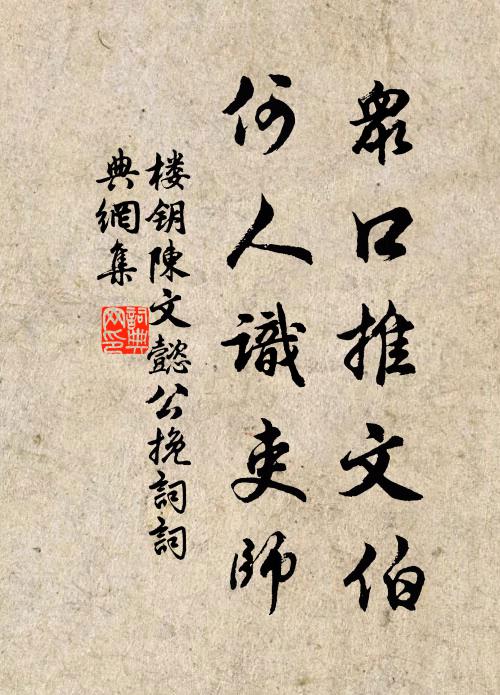 眾口推文伯
何人識吏師
楼钥陳文懿公挽詞詞
典網集
詞典网印